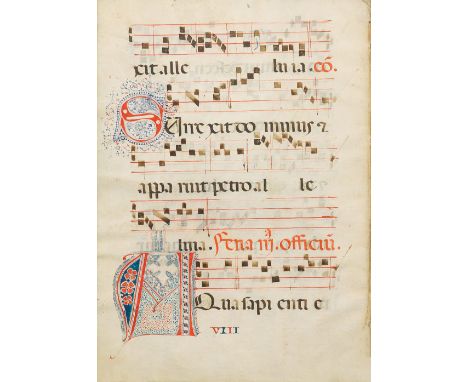 xit alle luia. cō.
Surrexit do minus ⁊
appa ruit petro al le
luia. Feria iij. officiū.
Aqua sapi enti e
VIII